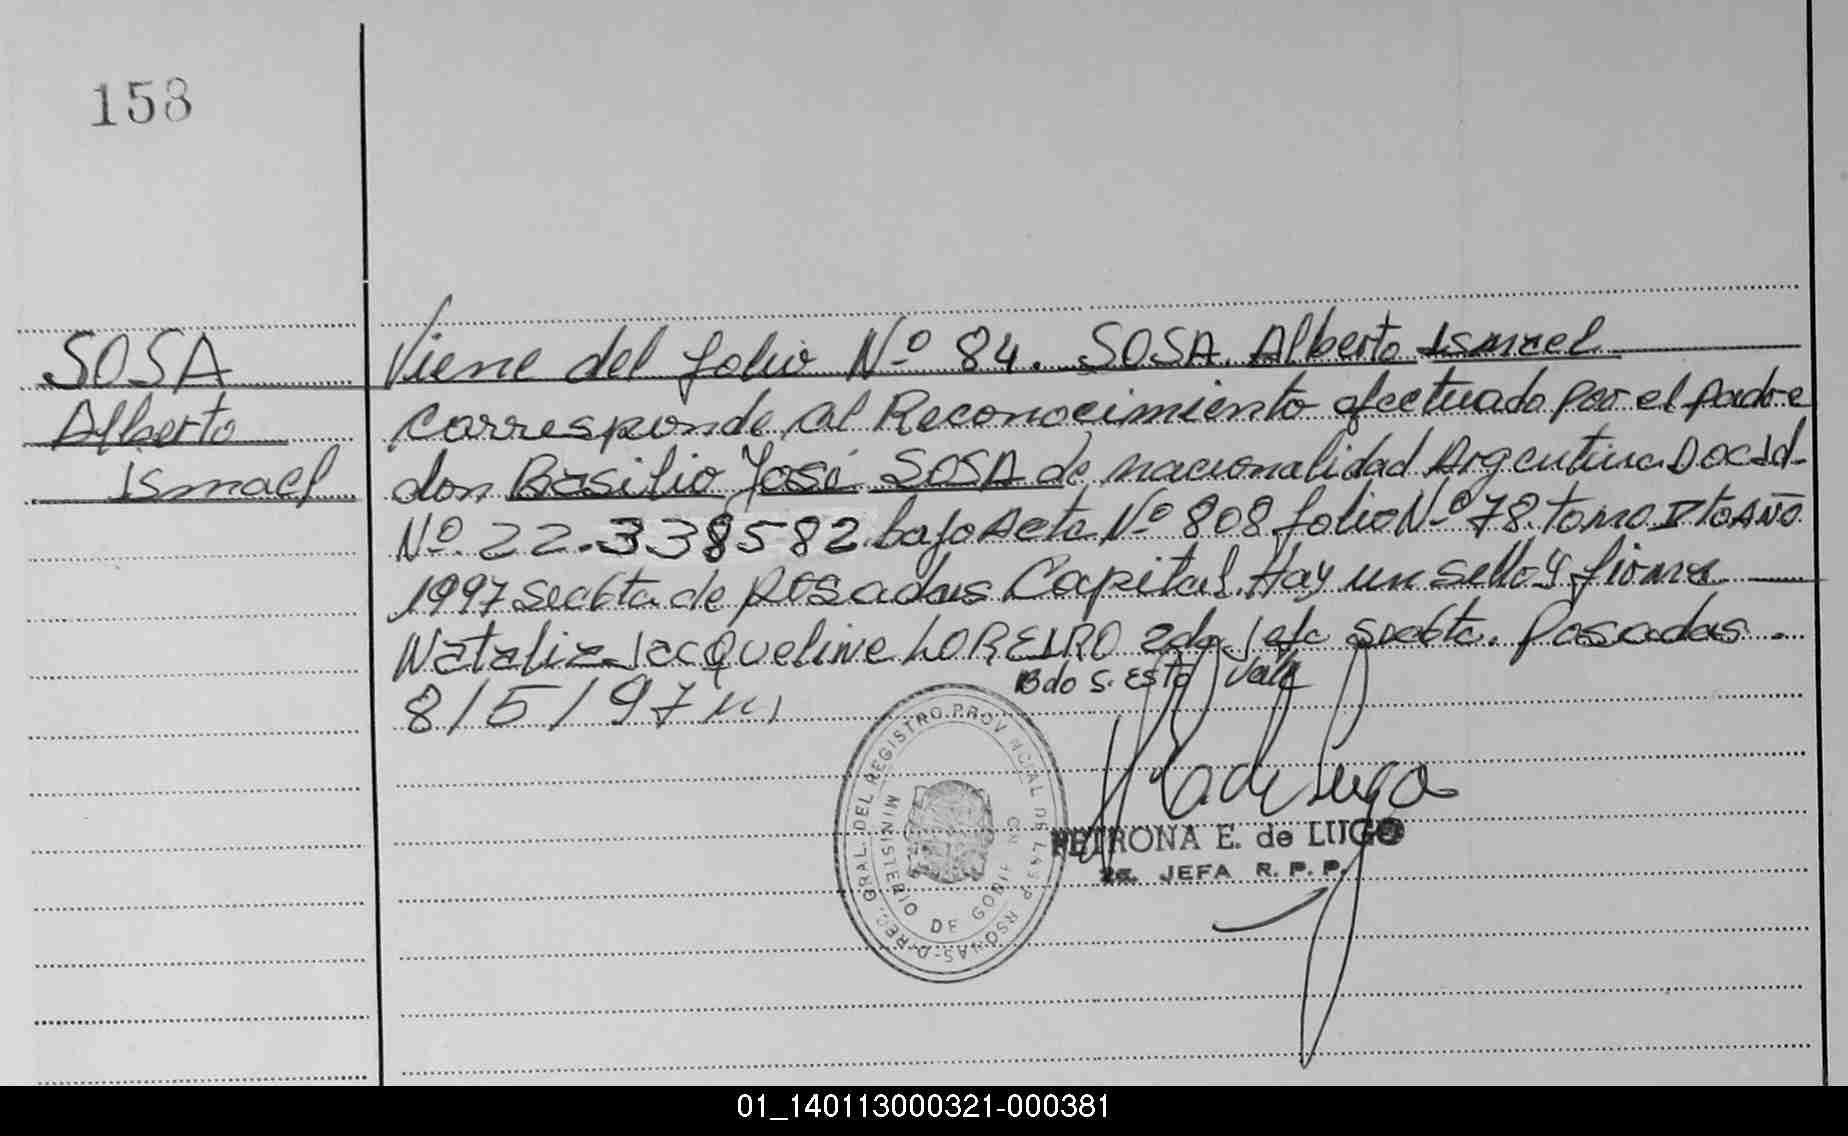 158
SOSA
Alberto
Ismael
Viene del folio Nº 84. SOSA. Alberto Ismael
corresponde al Reconocimiento efectuado por el padre
don Basilio José SOSA de nacionalidad Argentina Doc Id
Nº 22.338582 bajo Acta Nº 808 folio Nº 78. tomo Vto AÑO
1997 Sec 6ta de Posadas Capital. Hay un sello y firma
Natalia Jacqueline LOREIRO 2da Jefa Sec 6ta. Posadas.
8/5/97
Bdo S. Esta Vale
DIREC. GRAL. DEL REGISTRO PROVINCIAL DE LAS PERSONAS
MINISTERIO DE GOBIERNO
PETRONA E. de LUGO
2a. JEFA R. P. P.
01_140113000321-000381